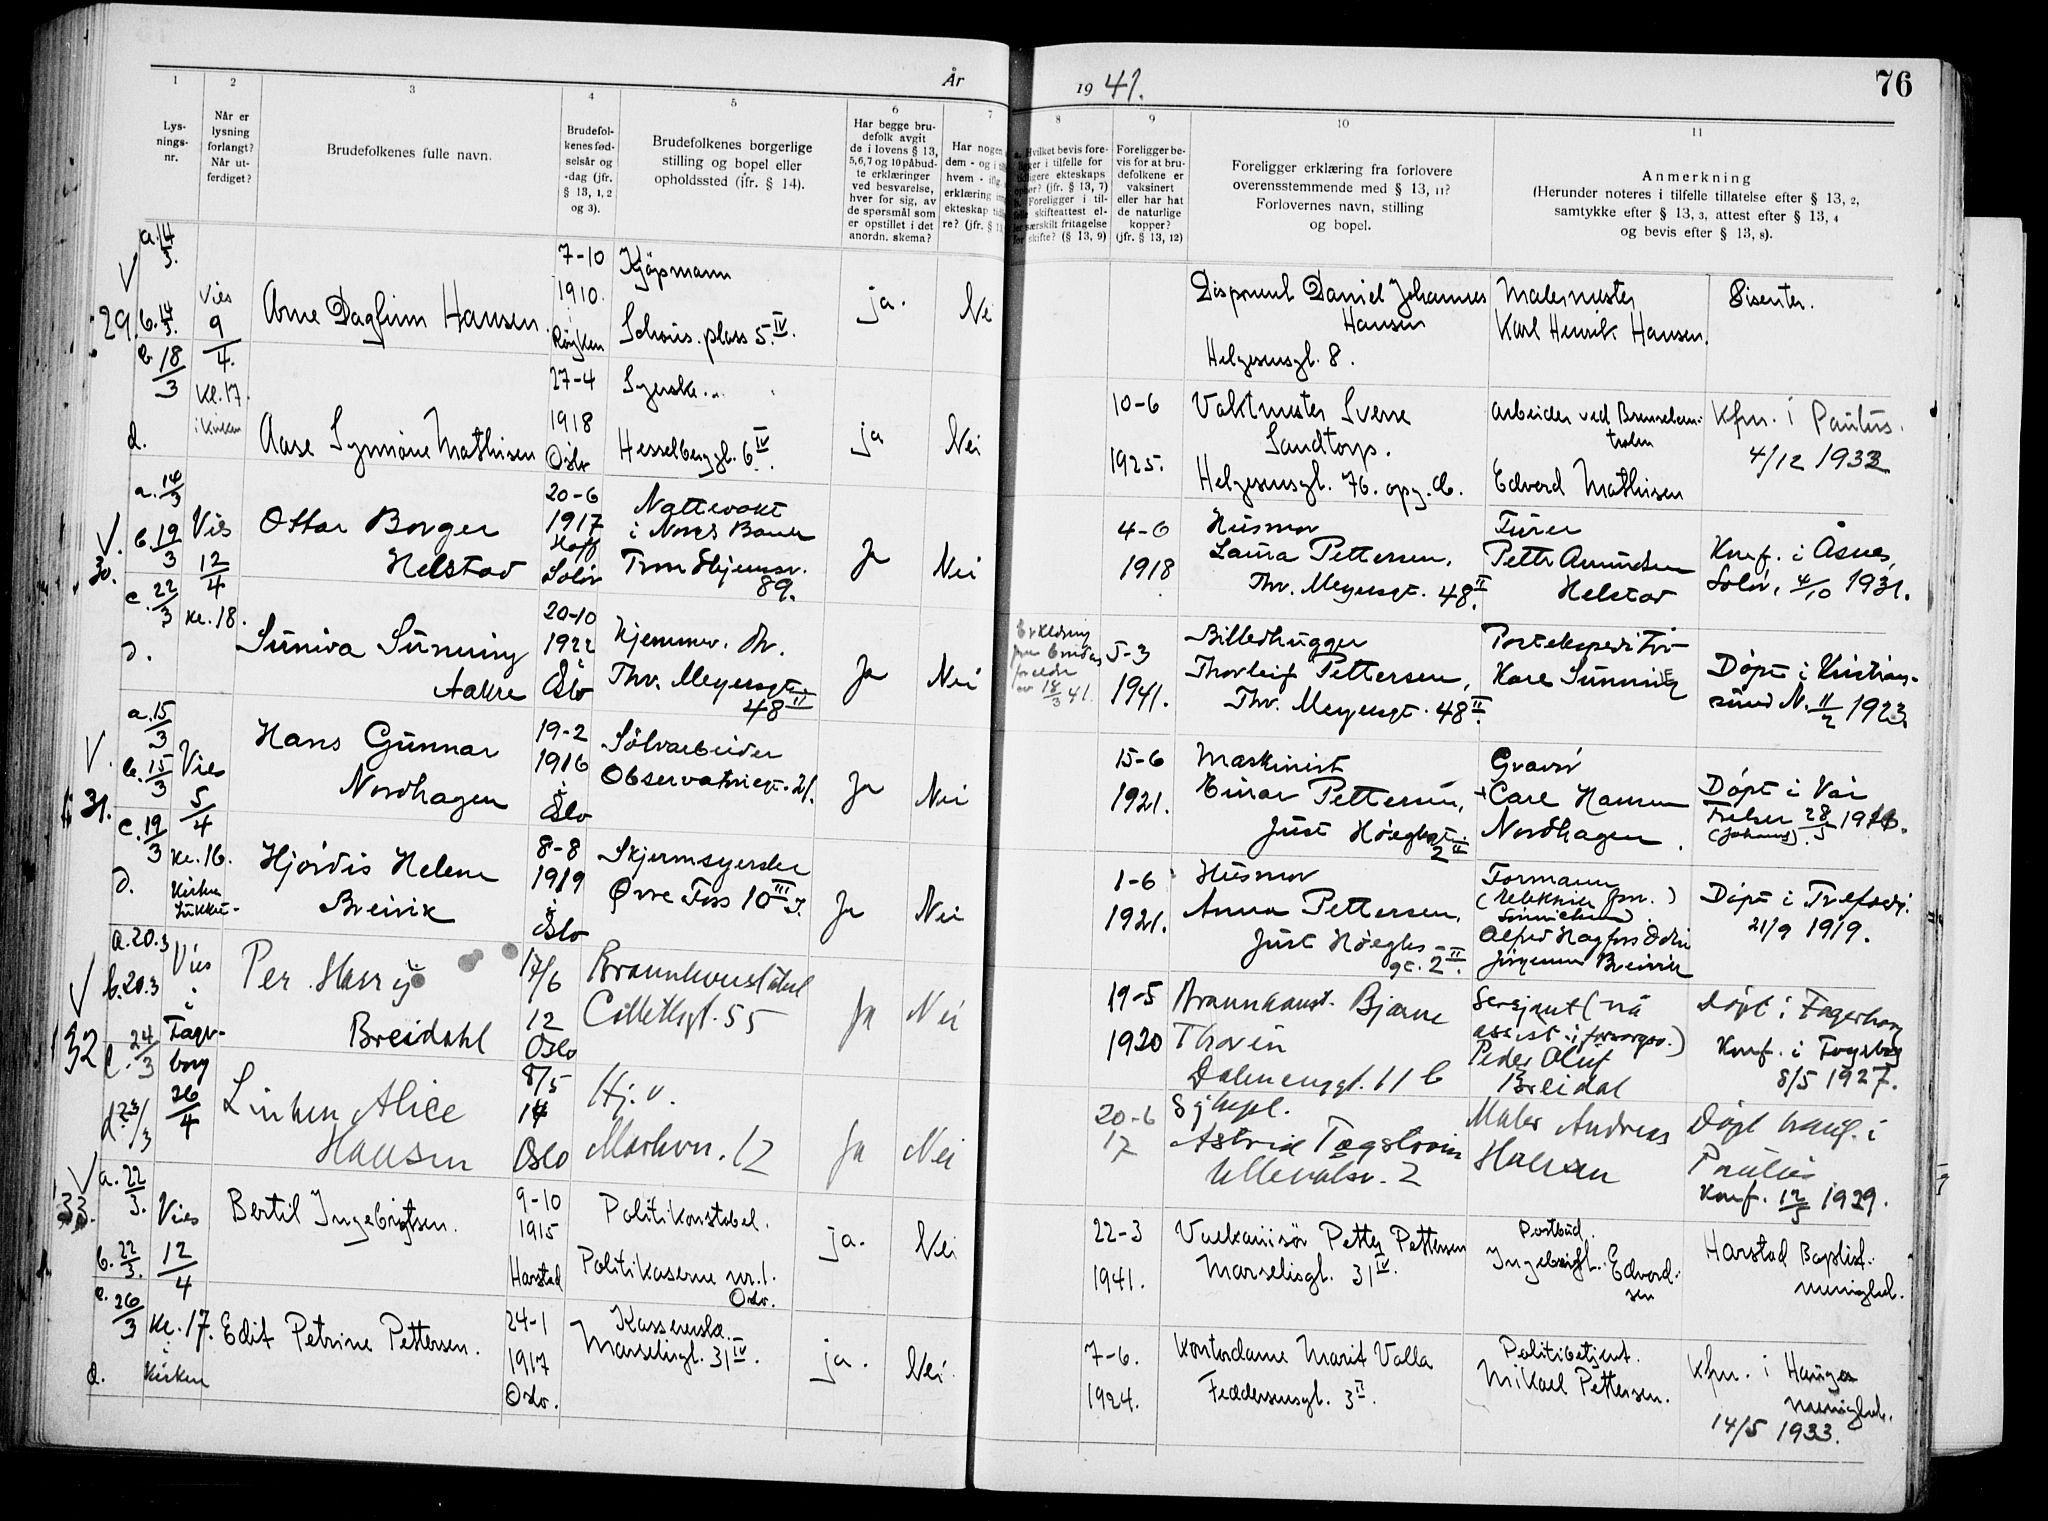 År 1941.
76
1 2 3 4 5 6 7 8 9 10 11
Lys-
nings-
nr.
Når er
lysning
forlangt?
Når ut-
ferdiget?
Brudefolkenes fulle navn.
Brudefol-
kenes fød-
selsår og
-dag (jfr.
§ 13, 1, 2
og 3).
Brudefolkenes borgerlige
stilling og bopel eller
opholdssted (jfr. § 14).
Har begge bru-
defolk avgit
de i lovens § 13,
5,6,7 og 10 påbud-
te erklæringer
ved besvarelse,
hver for sig, av
de spørsmål som
er opstillet i det
anordn. skema?
Har nogen
dem - og i
hvem - iflg.
erklæring
ekteskap
re? (jfr. §
Hvilket bevis fore-
ligger i tilfelle for
tidligere ekteskaps
ophør? (jfr. § 13, 7)
Foreligger i til-
felle skifteattest el-
ler særskilt fritagelse
for skifte? (§ 13, 9)
Foreligger be-
vis for at bru-
defolkene er
vaksinert
eller har hat
de naturlige
kopper?
(jfr. § 13, 12)
Foreligger erklæring fra forlovere
overensstemmende med § 13, 11?
Forlovernes navn, stilling
og bopel.
Anmerkning
(Herunder noteres i tilfelle tillatelse efter § 13, 2,
samtykke efter § 13, 3, attest efter § 13, 4
og bevis efter § 13, 8).
29.
a. 14/3.
b. 14/3.
c. 18/3
d.
Vies
9/4.
Kl. 17.
i kirken
Arne Dagfinn Hansen.
7-10
1910.
Røyken
Kjøpmann
Schous plass 5 IV.
ja.
Nei
Disponent Daniel Johannes
Hansen
Helgesensgt. 8.
Malermester
Karl Henrik Hansen.
Disenter.
Aase Symøne Mathisen
27-4
1918
Oslo
Syerske
Hesselbergsgt. 6 IV.
ja
Nei
10-6
1925.
Vaktmester Sverre
Sandtorp.
Helgesensgt. 76. opg. C.
Arbeider ved Brenselscen-
tralen
Edvard Mathisen
Kfm. i Paulus.
4/12 1932
30.
a. 14/3
b. 19/3
c. 22/3
d.
Vies
12/4
Kl. 18.
Ottar Borger
Helstad
20-6
1917
Hoff
Solør
Nattevakt
i Norges Bank
Trondhjemsv.
89.
Ja
Nei
4-6
1918
Husmor
Laura Pettersen.
Thv. Meyersgt. 48 II.
Furer
Petter Amundsen
Helstad
Konf. i Åsnes,
Solør, 4/10 1931.
Suniva Sunning
Aakre
20-10
1922
i
Oslo
Hjemmev. dr.
Thv. Meyersgt.
48 II
Ja
Nei
Erklæring
fra brudens
foreldre
av 18/3 41.
5-3
1941.
Billedhugger
Thorleif Pettersen,
Thv. Meyersgt. 48 II.
Postekspeditør
Kåre Sunning
Døpt i Kristian-
sund N. 11/2 1923
31.
a. 15/3
b. 15/3
c. 19/3
d.
Vies
5/4
Kl. 16.
Kirken
Hans Gunnar
Nordhagen
19-2
1916
i
Oslo
Sølvarbeider
Observatoriegt. 21.
Ja
Nei
15-6
1921.
Maskinist
Einar Pettersen,
Just Høeghs gt.
2 II
Gravør
Carl Hansen
Nordhagen.
Døpt i Vår
Frelser 28/5 1916.
Hjørdis Helene
Breivik
8-8
1919
i
Oslo
Skjermsyerske
Øvre Foss 10 III
Ja
Nei
1-6
1921.
Husmor
Anna Pettersen.
Just Høeghs
gt. 2 II.
Formann
Alfred Hagfors
Jørgensen Breivik
Døpt i Trefoldig.
21/9 1919.
132
a. 20.3
b. 20.3
c. 24/3
d. 23/3
Vies
i
Fager-
borg
26/4
Per Harry
Breidahl
17/6
12
Oslo
Brannkonstabel
Collettsgt. 55
Ja
Nei
19-5
1920
Brannkonst. Bjarne
Thorén
Dalenenggt. 11 b
Sersjant (nå
assist. i forsorgsv.)
Peder Oluf
Breidal
Døpt i Fagerborg
Konf. i Fagerborg
8/5 1927.
Linken Alice
Hansen
8/5
14
Oslo
Hj. v.
Markvn. 12
Ja
Nei
20-6
17
Sykepl.
Astrid Tøgstrøm
Ullevålsv. 2
Maler Andreas
Hansen
Døpt i
Paulus
Konf. 12/5 1929.
133.
a. 22/3.
b. 22/3.
c. 26/3
d.
Vies
12/4
Kl. 17.
i
Kirken
Bertil Ingebrigtsen.
9-10
1915
Harstad
Politikonstabel.
Politikaserne nr. 1.
Oslo.
ja.
Nei
22-3
1941.
Vulkanisør Petter Pettersen
Marselisgt. 31 IV.
Postbud.
Ingebrigt Edvard-
sen
Harstad Baptist-
menighet.
Edit Petrine Pettersen.
24-1
1917
Oslo.
Kassererske.
Marselisgt. 31 IV.
ja.
Nei.
7-6.
1924.
Kontordame Marit Valla
Feddersensgt. 3 II.
Politibetjent.
Mikael Pettersen.
Kfm. i Hauges
menighet.
14/5 1933.